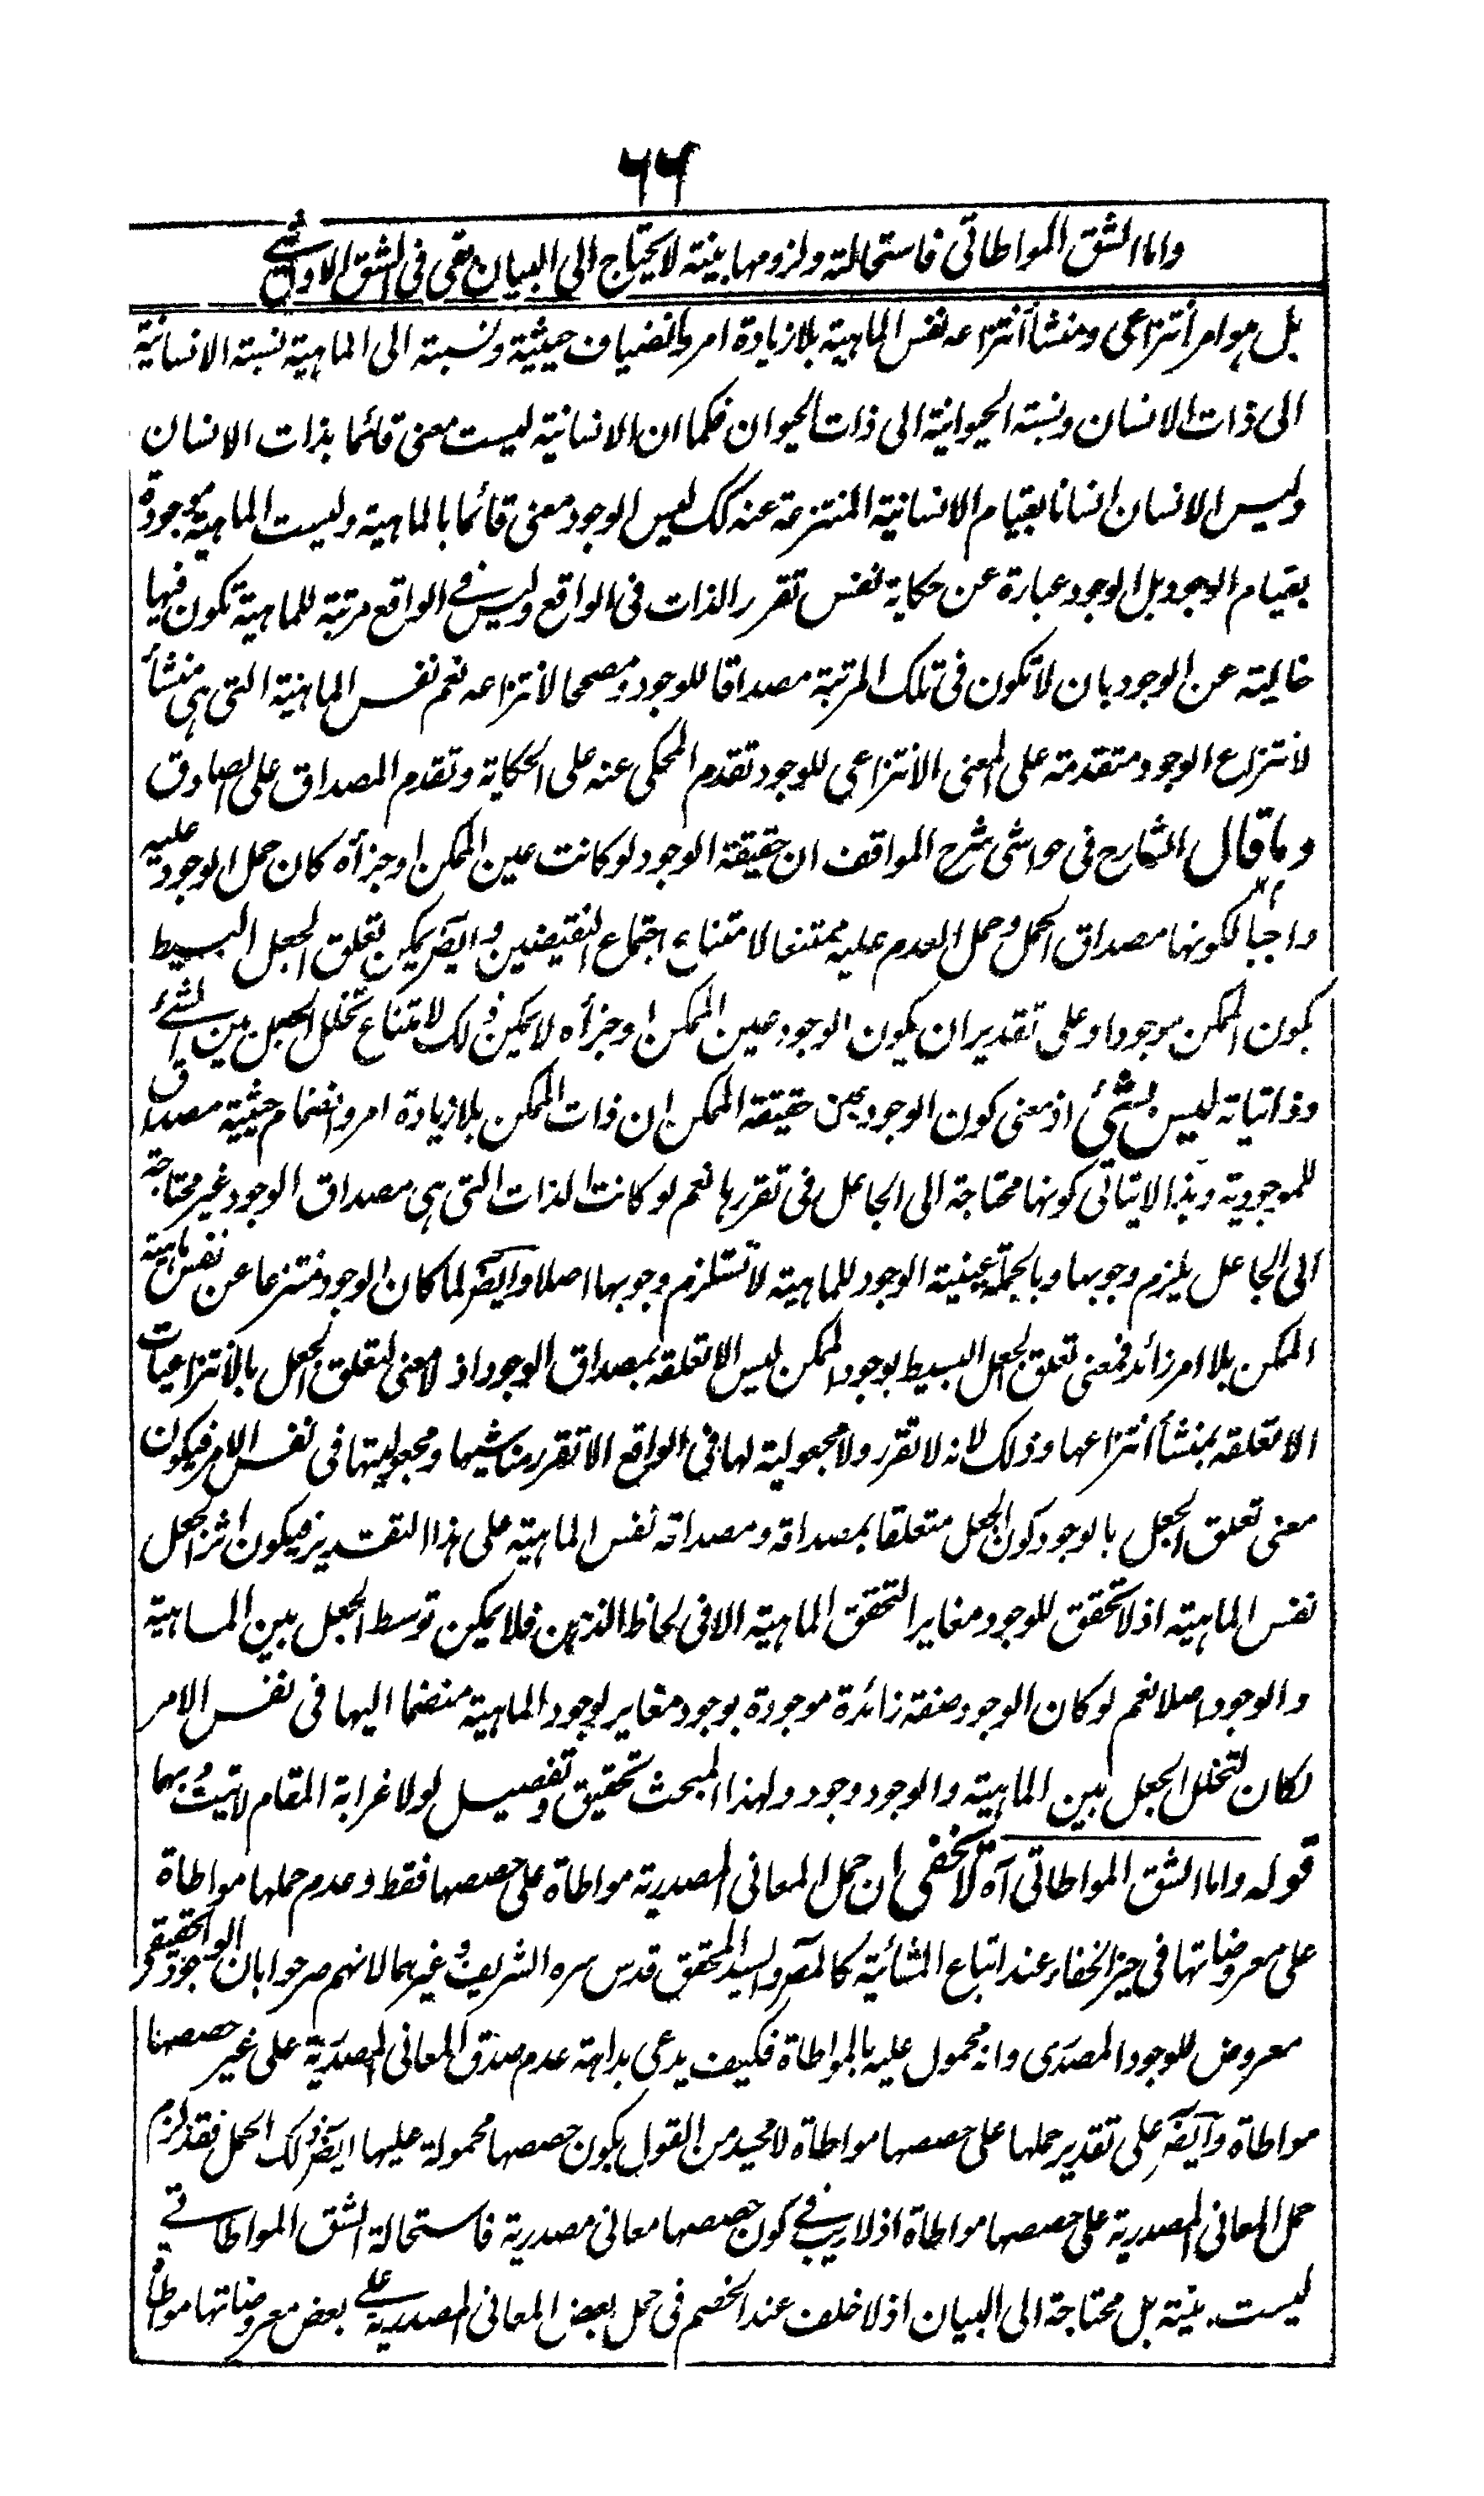 ٦٦
واما الشق المواطاتى فاستحالته ولزومها بينة لا يحتاج الى البيان بقى فى الشق الاول شئ
بل هو امر انتزاعى ومنشأ انتزاعه نفس الماهية بلا زيادة امر وانضياف حيثية ونسبته الى الماهية نسبة الانسانية
الى ذات الانسان ونسبة الحيوانية الى ذات الحيوان فكما ان الانسانية ليست معنى قائما بذات الانسان
وليس الانسان انسانا بقيام الانسانية المنتزعة عنه كك ليس الوجود معنى قائما بالماهية وليست الماهية موجودة
بقيام الوجود بل الوجود عبارة عن حكاية نفس تقرر الذات فى الواقع وليس فے الواقع مرتبة للماهية تكون فيها
خالية عن الوجود بان لا تكون فى تلك المرتبة مصداقا للوجود ومصححا لانتزاعه نعم نفس الماهية التى هى منشأ
لانتزاع الوجود متقدمة على المعنى الانتزاعى للوجود تقدم المحكى عنه على الحكاية وتقدم المصداق على الصادق
وما قال الشارح فى حواشى شرح المواقف ان حقيقة الوجود لو كانت عين الممكن او جزأه كان حمل الوجود عليه
واجبا لكونها مصداق الحمل وحمل العدم عليه ممتنعا لامتناع اجتماع النقيضين وايضا يكون تعلق الجعل البسيط
بكون الممكن موجودا وعلى تقدير ان يكون الوجود عين الممكن او جزأه لا يمكن ذلك لامتناع تخلل الجعل بين الشئ
وذاتياته ليس بشئ اذ معنى كون الوجود عين حقيقة الممكن ان ذات الممكن بلا زيادة امر وانضمام حيثية مصداق
للموجودية وهذا لا ينافى كونها محتاجة الى الجاعل فى تقررها نعم لو كانت الذات التى هى مصداق الوجود غير محتاجة
الى الجاعل يلزم وجوبها وبالجملة عينية الوجود للماهية لا تستلزم وجوبها اصلا وايضا لما كان الوجود منتزعا عن نفس ماهية
الممكن بلا امر زائد فمعنى تعلق الجعل البسيط بوجود الممكن ليس الا تعلقه بمصداق الوجود اذ لا معنى لتعلق الجعل بالانتزاعيات
الا تعلقه بمنشأ انتزاعها وذلك لانه لا تقرر ولا مجعولية لها فى الواقع الا تقرر مناشيها ومجعوليتها فى نفس الامر فيكون
معنى تعلق الجعل بالوجود كون الجعل متعلقا بمصداقه ومصداقه نفس الماهية على هذا التقدير فيكون اثر الجعل
نفس الماهية اذ لا تحقق للوجود مغايرا لتحقق الماهية الا فى لحاظ الذهن فلا يمكن توسط الجعل بين الماهية
والوجود اصلا نعم لو كان الوجود صفة زائدة موجودة بوجود مغاير لوجود الماهية منضما اليها فى نفس الامر
لكان لتخلل الجعل بين الماهية والوجود وجود ولهذا المبحث تحقيق وتفصيل لولا غرابة المقام لاتيت بهما
قوله واما الشق المواطاتى آه لا يخفى ان حمل المعانى المصدرية مواطاة على حصصها فقط وعدم حملها مواطاة
على معروضاتها فى حيز الخفاء عند اتباع المشائية كالمصر والسيد المحقق قدس سره الشريف وغيرهما لانهم صرحوا بان الوجود الحقيقى
معروض للوجود المصدرى وانه محمول عليه بالمواطاة فكيف يدعى بداهة عدم صدق المعانى المصدرية على غير حصصها
مواطاة وايضا على تقدير حملها على حصصها مواطاة لا محيد من القول بكون حصصها محمولة عليها ايضا ذلك الحمل فقد لزم
حمل المعانى المصدرية على حصصها مواطاة اذ لا ريب فے كون حصصها معانى مصدرية فاستحالة الشق المواطاتے
ليست بينة بل محتاجة الى البيان اذ لا خلف عند الخصم فى حمل بعض المعانى المصدرية علے بعض معروضاتها مواطاة